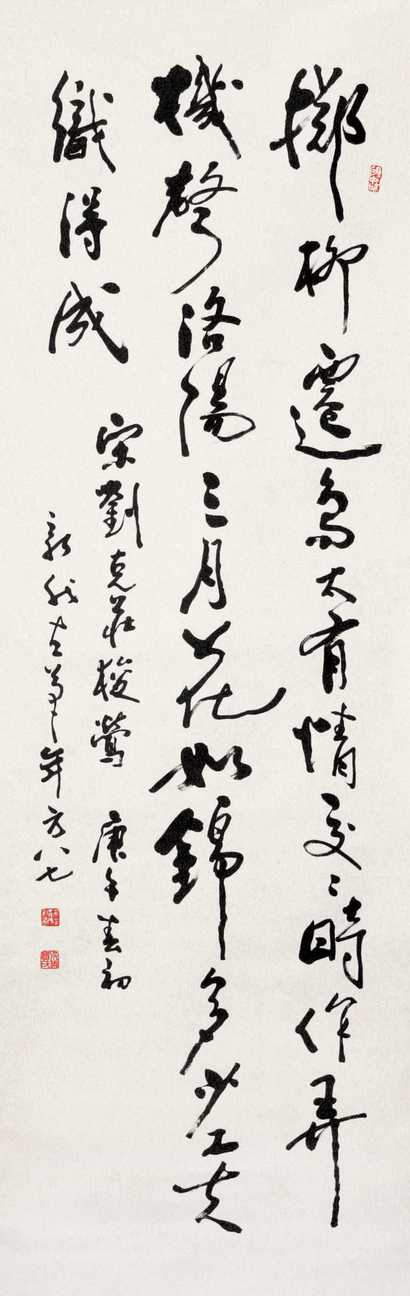 擲柳遷喬太有情交〻時作弄
機聲洛陽三月花如錦多少工夫
織得成
宋劉克莊梭鶯 庚午春初
新我左筆年方八七